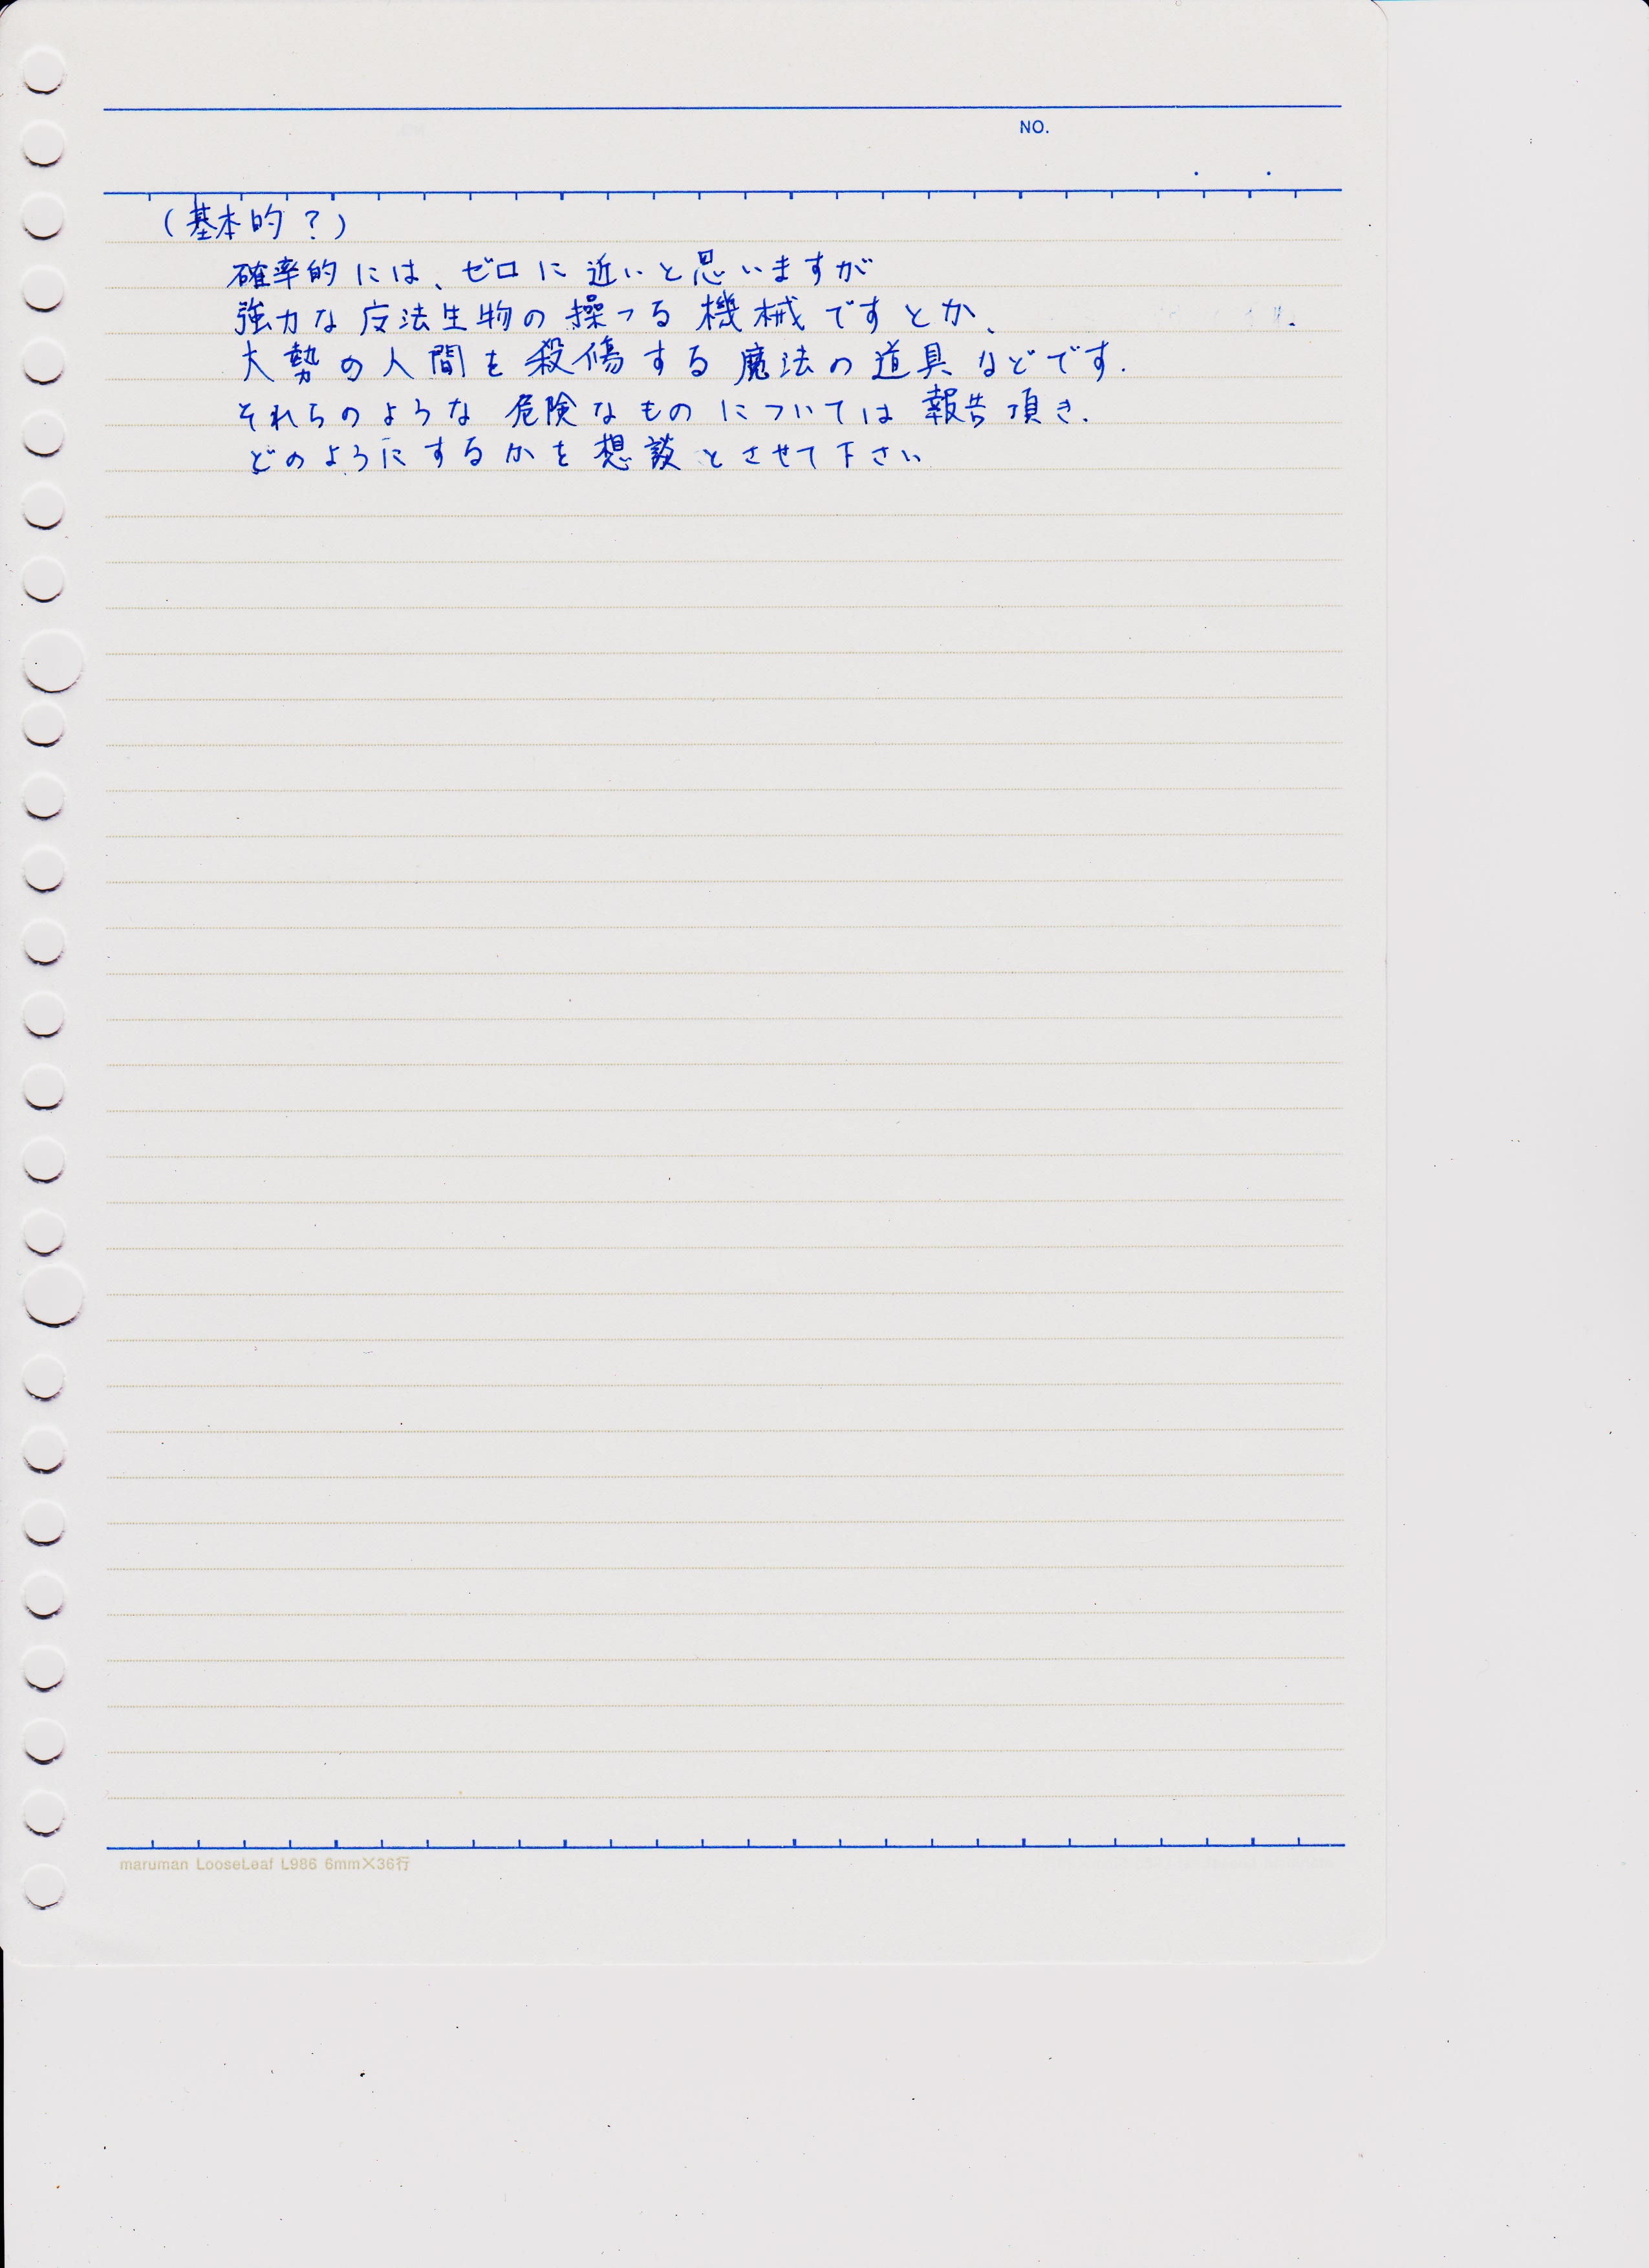 NO.
（基本的？）
確率的には、ゼロに近いと思いますが
強力な广法生物の操つる機械ですとか、
大勢の人間を殺傷する魔法の道具などです.
それらのような危険なものについては報告頂き.
どのようにするかを想談とさせて下さい
maruman LooseLeaf L986 6mm×36行